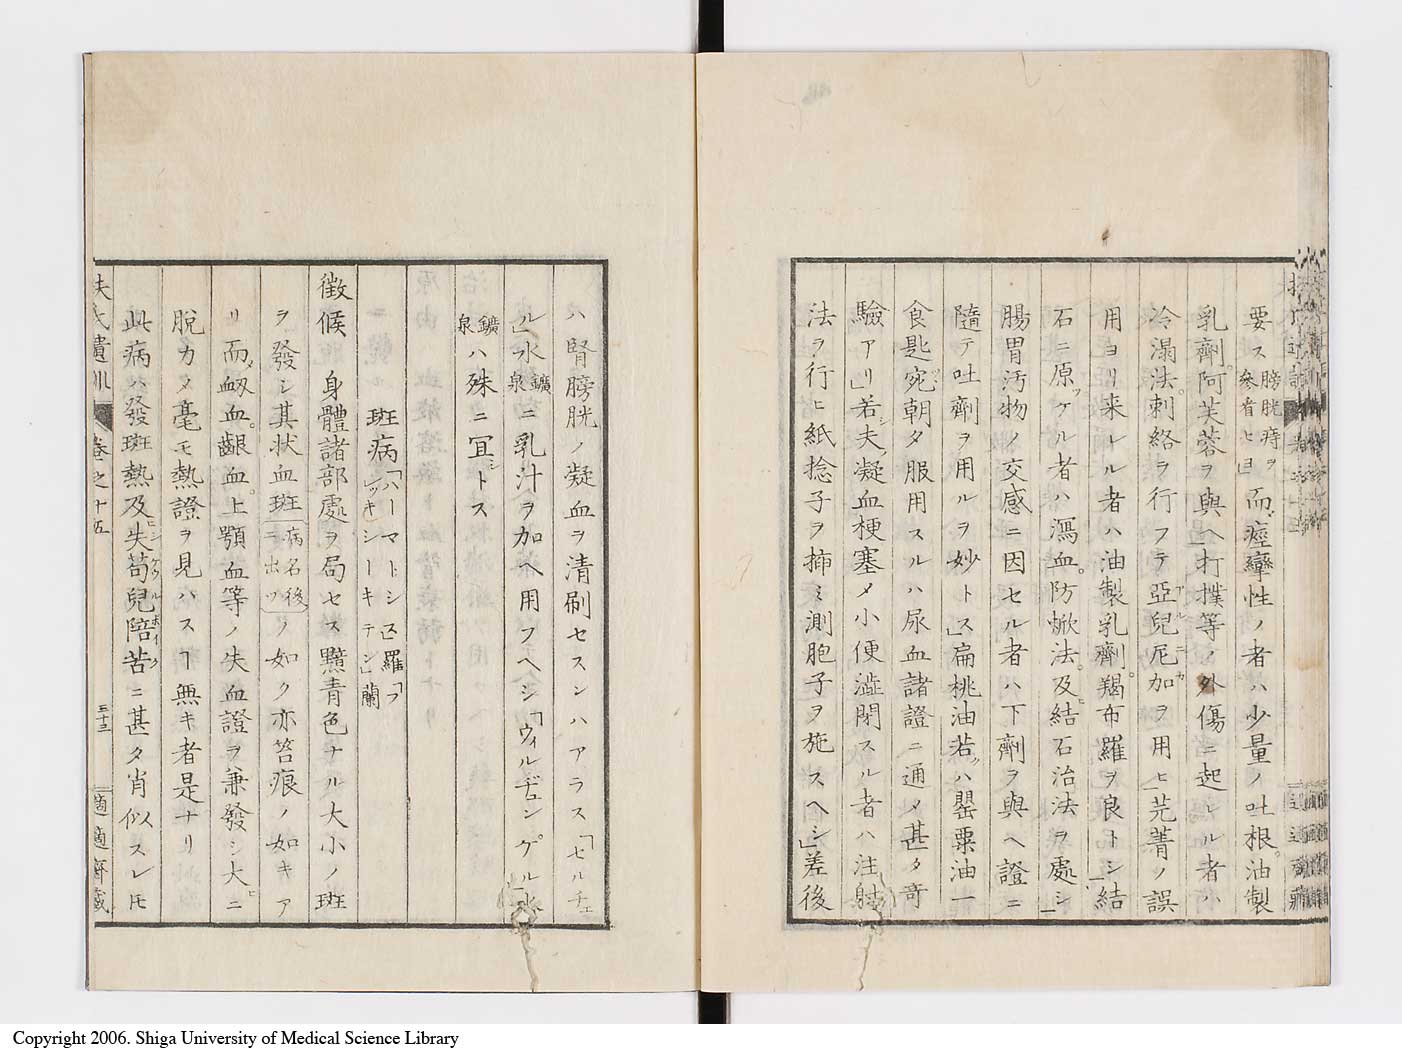 要ス膀胱痔ヲ參看セヨ而痙攣性ノ者ハ少量ノ吐根油製
乳劑阿芙蓉ヲ與ヘ打撲等ノ外傷ニ起レル者ハ
冷溻法刺絡ヲ行フテ亞兒尼加ヲ用ヒ芫菁ノ誤
用ヨリ来レル者ハ油製乳劑羯布羅ヲ良トシ結
石ニ原ケル者ハ瀉血防焮法及結石治法ヲ處シ
腸胃汚物ノ交感ニ因セル者ハ下劑ヲ與ヘ證ニ
隨テ吐劑ヲ用ルヲ妙トス扁桃油若ハ罌粟油一
食匙宛朝夕服用スルハ尿血諸證ニ通メ甚タ奇
驗アリ若夫凝血梗塞メ小便澁閉スル者ハ注射
法ヲ行ヒ紙捻子ヲ揷ミ測胞子ヲ施スヘシ差後
ハ腎膀胱ノ凝血ヲ清刷セスンハアラス「セルチェ
ル」水鑛泉ニ乳汁ヲ加ヘ用フヘシ「ウィルヂュンゲル水
鑛泉ハ殊ニ冝トス
斑病「ハーマトシス羅「フレッキシーキテン」蘭
徴候 身體諸部處ヲ局セス黯青色ナル大小ノ斑
ヲ發シ其状血斑病名後ニ出ツノ如ク亦笞痕ノ如キア
リ而衂血齦血上顎血等ノ失血證ヲ兼發シ大ニ
脱力タ毫モ熱證ヲ見ハスヿ無キ者是ナリ
此病ハ發斑熱及失苟兒陪苦ニ甚タ肖似スレ𪜈
扶氏遺訓 卷之十五 三十三 適適齋藏